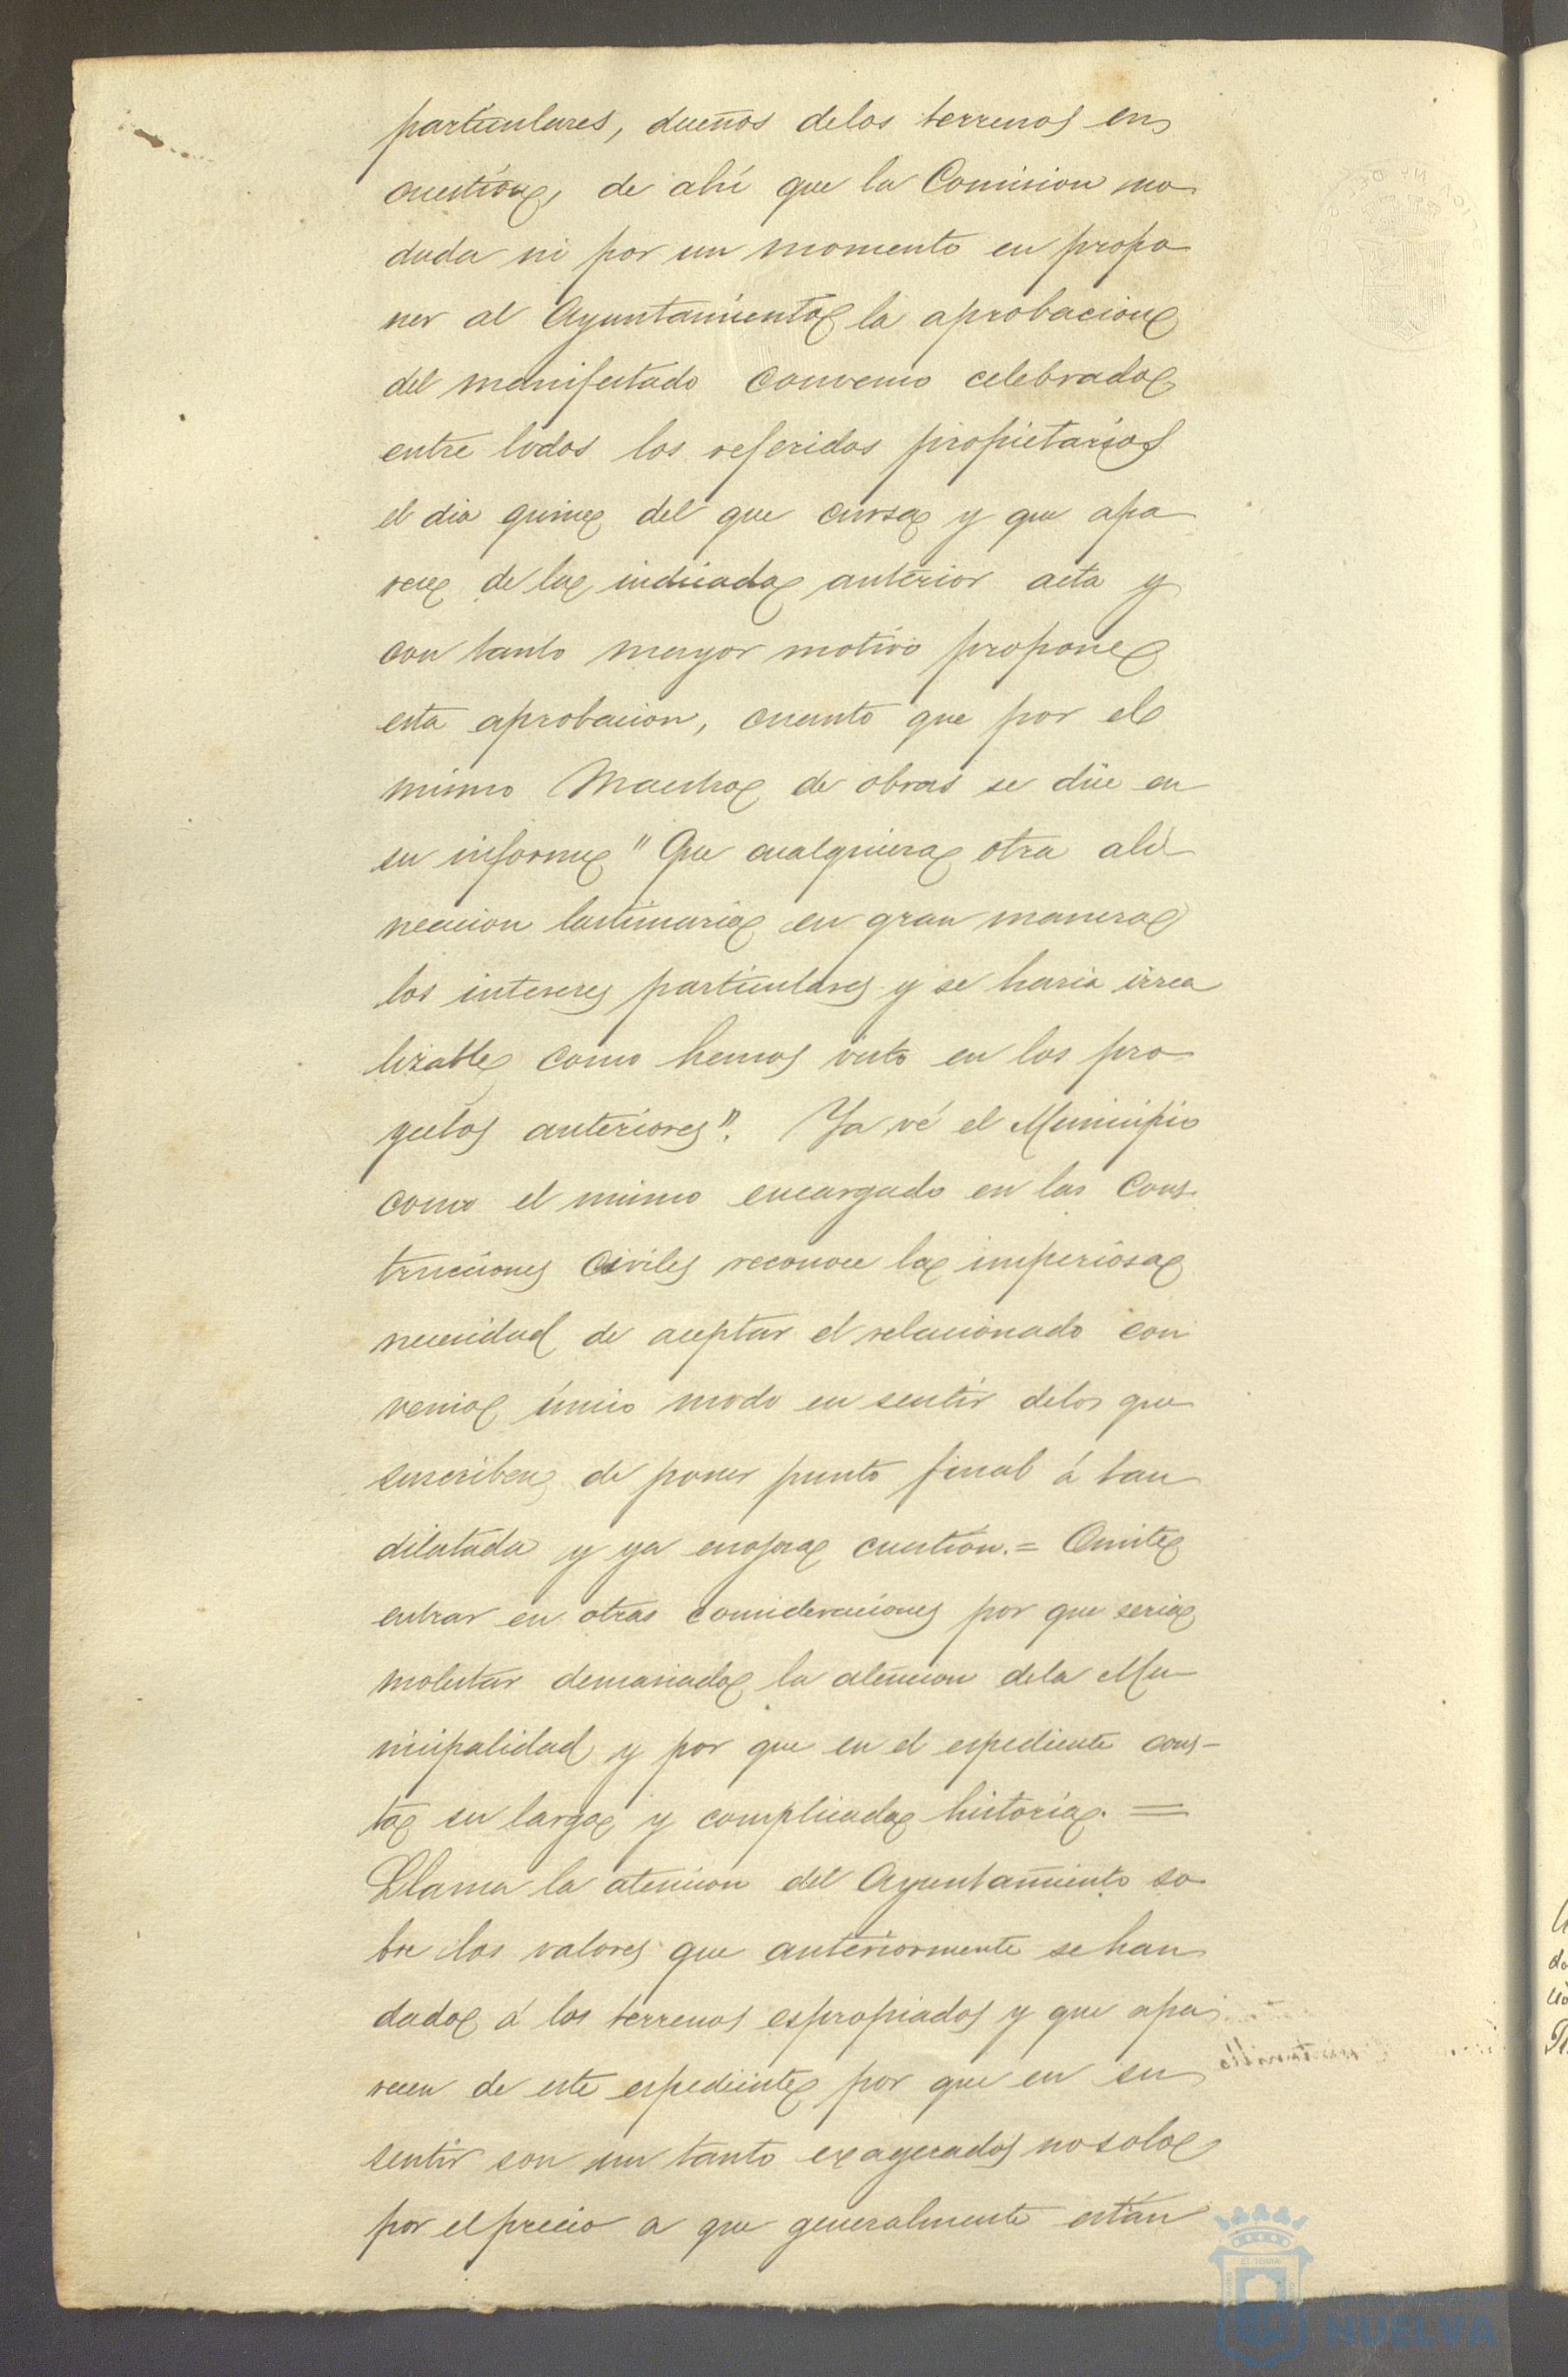 particulares, dueños delos terrenos en
cuestion, de ahí que la Comision no
duda ni por un momento en propo
ner al Ayuntamiento la aprobacion
del manifestado convenio celebrado
entre todos los referidos propietarios
el dia quince del que cursa y que apa
rece de la indicada anterior acta y
con tanto mayor motivo propone
esta aprobacion, cuanto que por el
mismo Maestro de obras se dice en
su informe "Que cualquiera otra ali
neacion lastimaria en gran manera
los intereses particulares y se haria irrea
lizable como hemos visto en los pro
yectos anteriores". Ya vé el Municipio
como el mismo encargado en las Cons
trucciones Civiles reconoce la imperiosa
necesidad de aceptar el relacionado con
venio único modo en sentir delos que
suscriben de poner punto final á tan
dilatada y ya enojosa cuestion.= Omite
entrar en otras consideraciones por que seria
molestar demasiado la atencion dela Mu-
nicipalidad y por que en el espediente cons-
ta su larga y complicada historia. =
Llama la atencion del Ayuntamiento so
bre los valores que anteriormente se han
dado á los terrenos espropiados y que apa
recen de este espediente por que en su
sentir son un tanto exagerados no solo
por el precio a que generalmente están
HUELVA